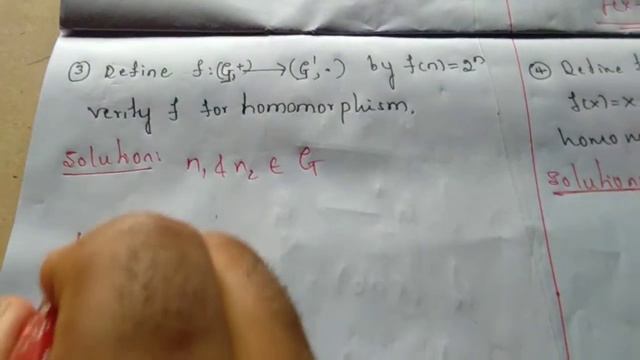 ③ Define f:(G,+)→(G',·) by f(n)=2ⁿ
verify f for homomorphism.
Solution: n₁ & n₂ ∈ G
④ Define f
f(x)=x
homom
Solution: